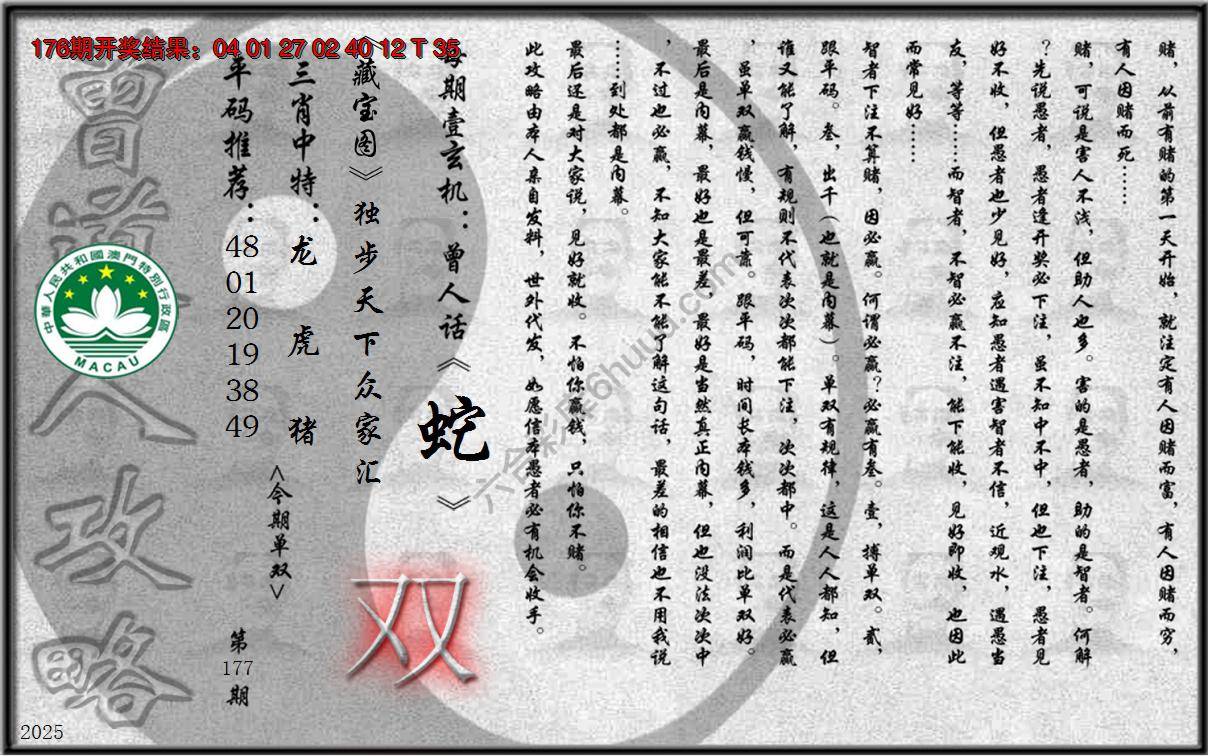 176期开奖结果：04 01 27 02 40 12 T 35
赌，从前有赌的第一天开始，就注定有人因赌而富，有人因赌而穷，
有人因赌而死……
赌，可说是害人不浅，但助人也多。害的是愚者，助的是智者。何解
？先说愚者，愚者逢开奖必下注，虽不知中不中，但也下注，愚者见
好不收，但愚者也少见好，应知愚者遇害智者不信，近观水，遇愚当
友，等等……而智者，不智必赢不注，能下能收，见好即收，也因此
而常见好……
智者下注不算赌，因必赢。何谓必赢？必赢有叁。壹，搏单双。贰，
跟平码。叁，出千（也就是内幕）。单双有规律，这是人人都知，但
谁又能了解，有规则不代表次次都能下注，次次都中。而是代表必赢
，虽单双赢钱慢，但可靠。跟平码，时间长本钱多，利润比单双好。
最后是内幕，最好也是最差，最好是当然真正内幕，但也没法次次中
，不过也必赢，不知大家能不能了解这句话，最差的相信也不用我说
……到处都是内幕。
最后还是对大家说，见好就收。不怕你赢钱，只怕你不赌。
此攻略由本人亲自发料，世外代发，如愿信本愚者必有机会收手。
每期壹玄机：曾人话《蛇》
《藏宝图》独步天下众家汇
双
三肖中特：龙 虎 猪
<今期单双>
平码推荐：48 01 20 19 38 49
第177期
曾道人攻略
中華人民共和國澳門特別行政區
MACAU
六合彩库6huuu.com
2025